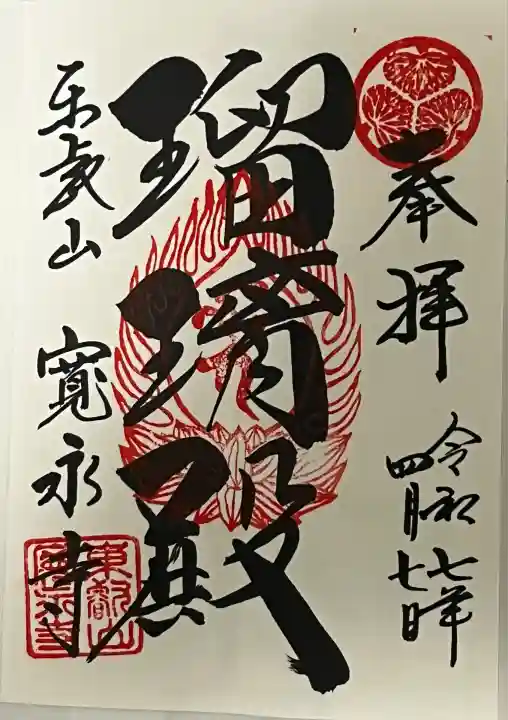 奉拝
令和七年
四月七日
瑠璃殿
東叡山 寛永寺
東叡山
寛永寺